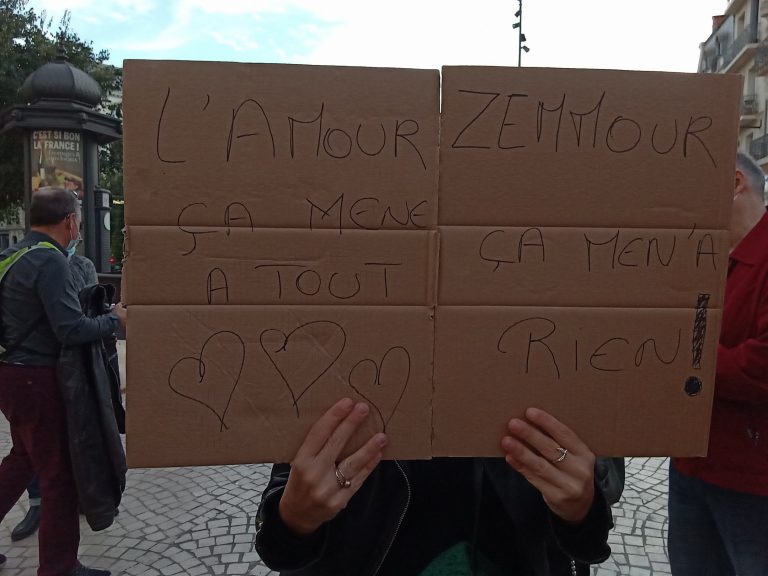 L'AMOUR
ÇA MENE
A TOUT
ZEMMOUR
ÇA MEN'A
RIEN!
C'EST SI BON
LA FRANCE!